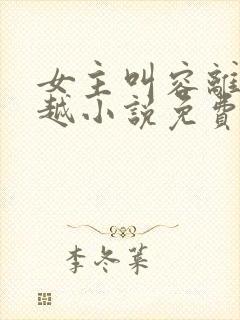 女主叫容離
越小說免費
李冬葉